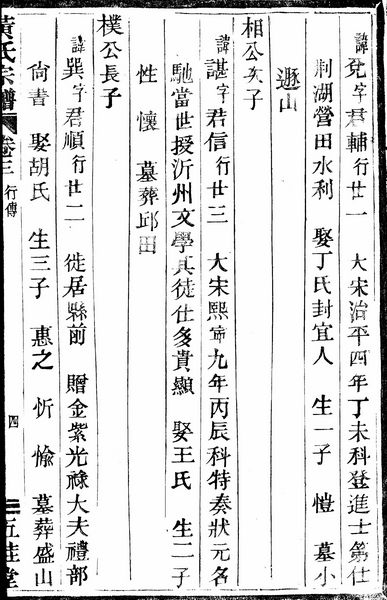 諱兌字君輔 行廿一 大宋治平四年丁未科登進士第仕
荊湖營田水利 娶丁氏封宜人 生一子 愷 墓小
遯山
相公次子
諱諶字君信 行廿三 大宋熙甯九年丙辰科特奏狀元名
馳當世授沂州文學其徒仕多貴顯 娶王氏 生二子
性 懷 墓葬邱田
樸公長子
諱巽字君順 行廿二 徙居縣前 贈金紫光祿大夫禮部
尚書 娶胡氏 生三子 惠之 忻 愉 墓葬盛山
黃氏宗譜 卷三 行傳 四 五桂堂